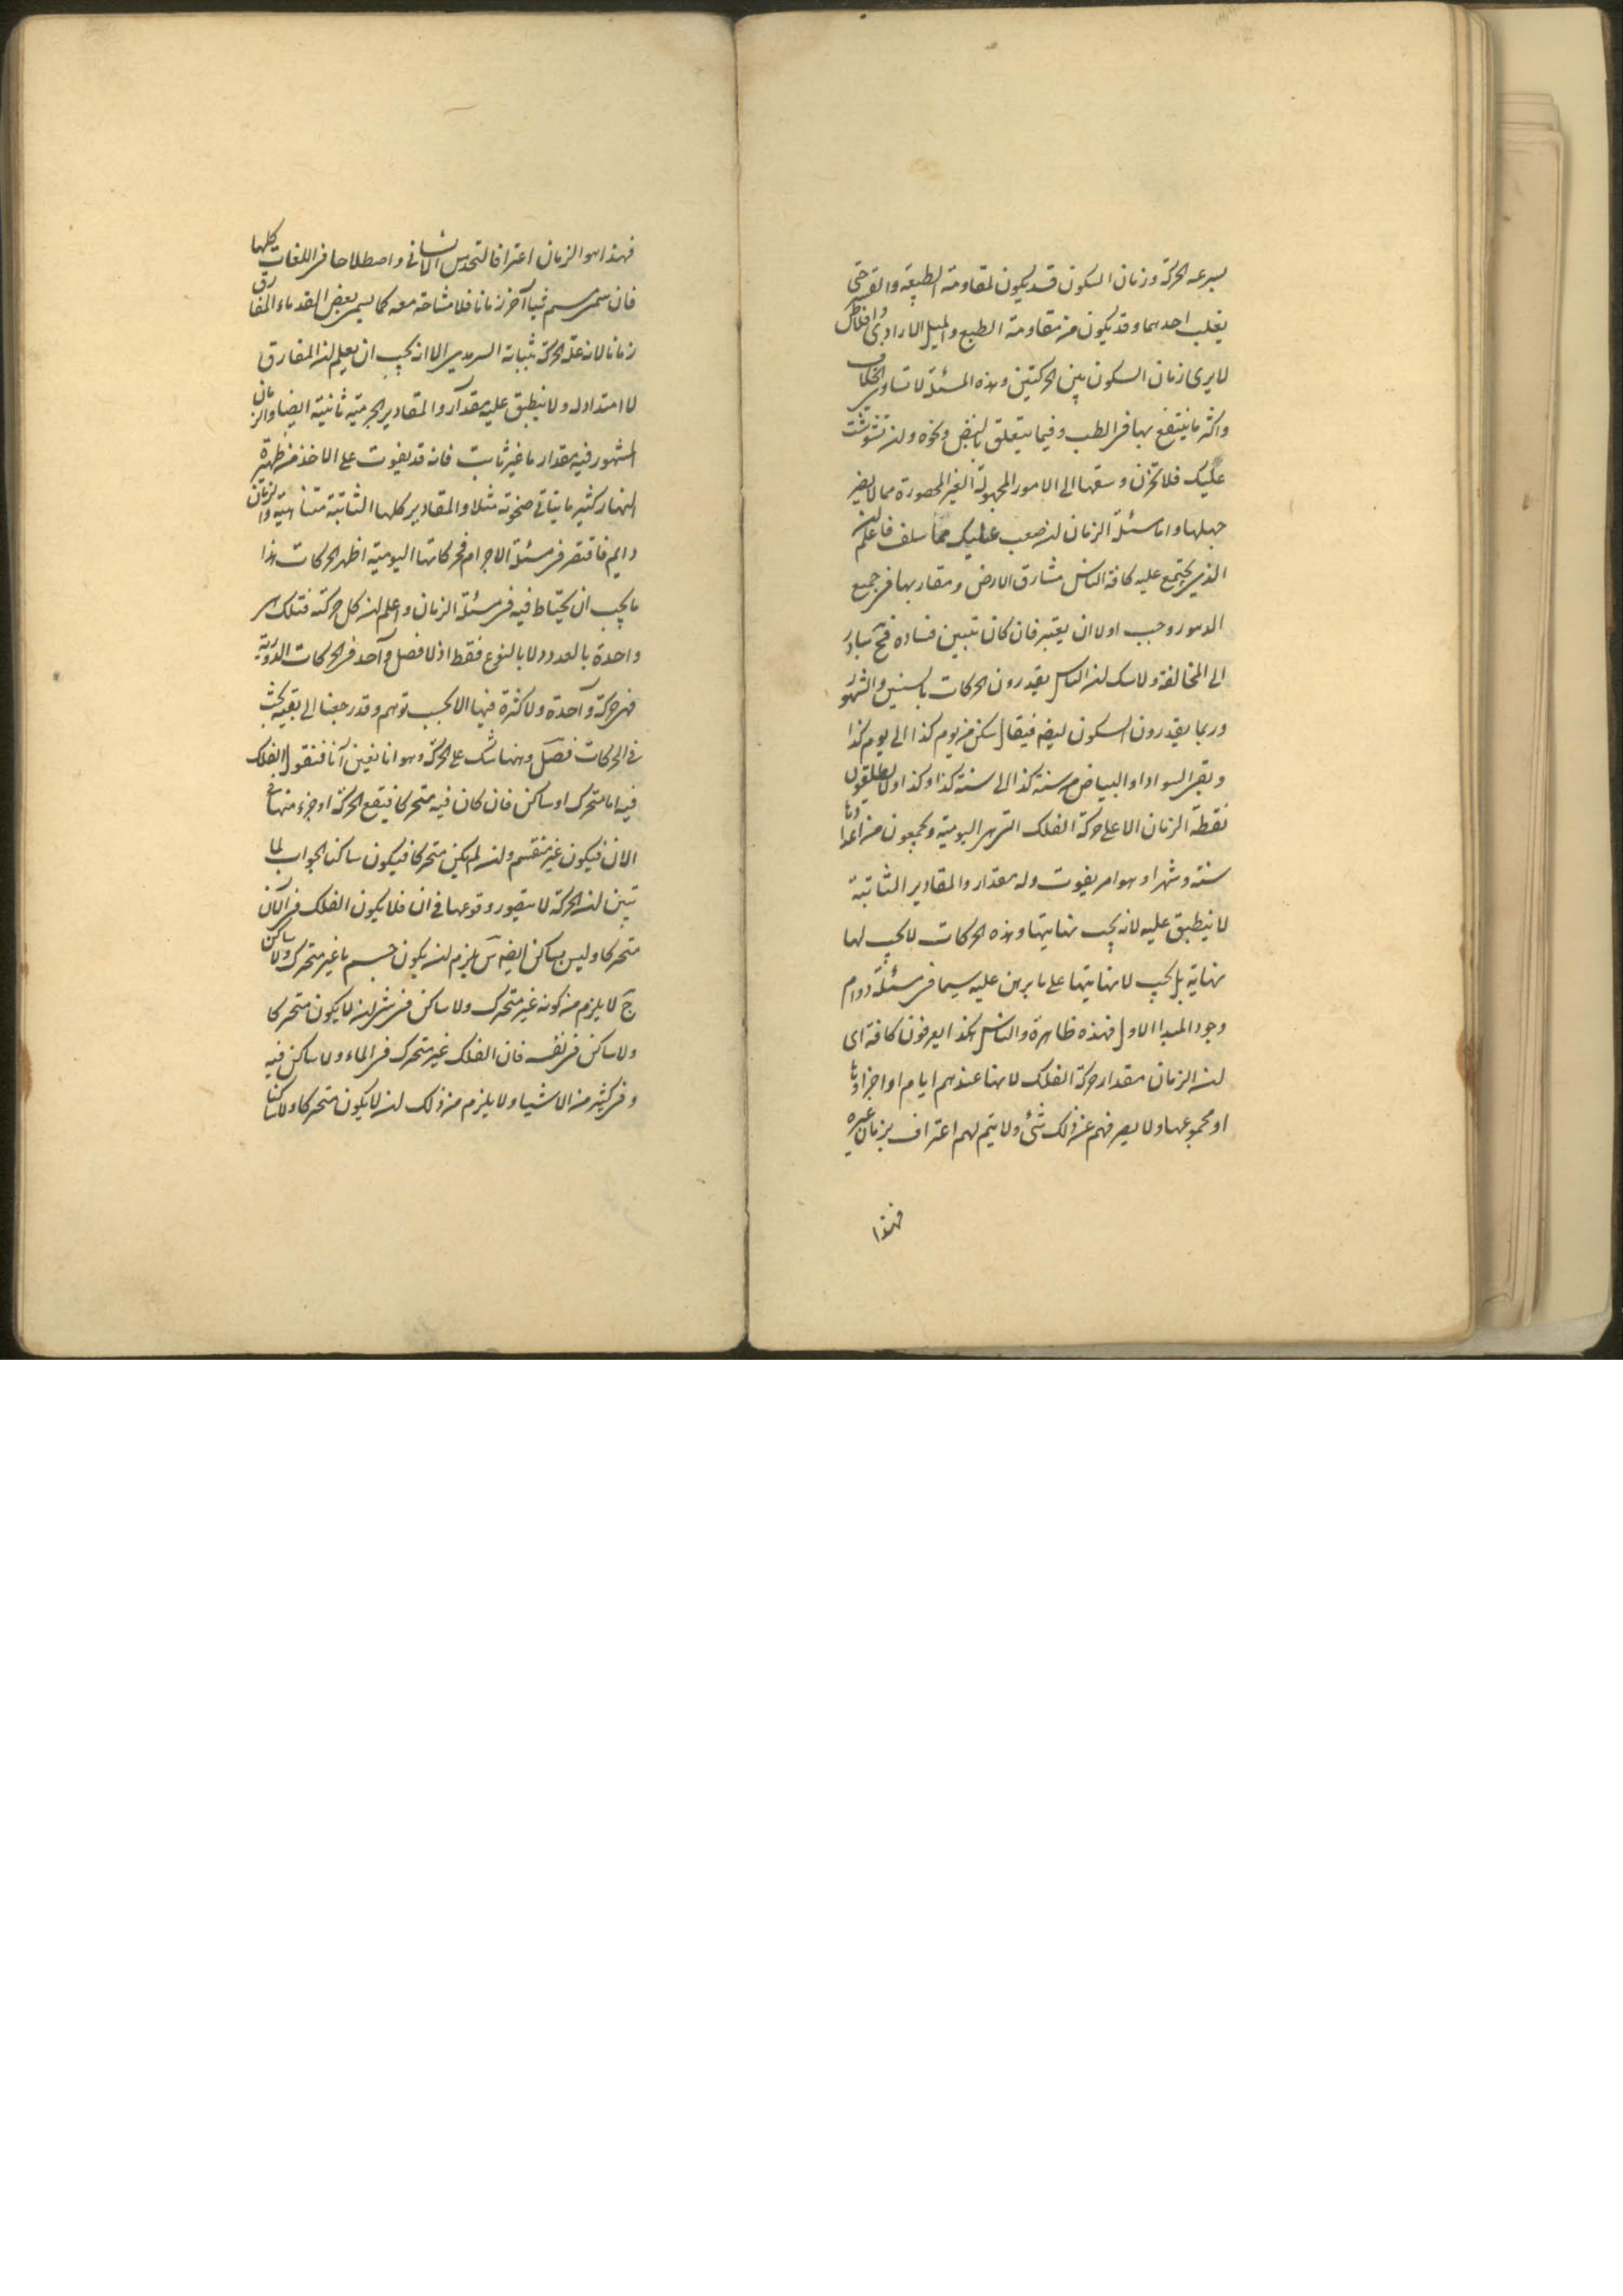 بسرعه الحركة وزمان السكون قد يكون لمقاومة الطبيعة والقسر حتى
يغلب احدهما وقد يكون من مقاومة الطبع والميل الارادى وافلاطن
لا يرى زمان السكون بين الحركتين وهذه المسئلة لا تساوى الخلاف
واكثر ما ينتفع بها فى الطب وفيما يتعلق بالنبض ونحوه وان تشوشت
عليك فلا تحزن وسقها الى الامور المجهولة الغير المحصورة مما لا يضر
جهلها واما مسئلة الزمان ان صعب عليك مما سلف فاعلم ان
الذى يجتمع عليه كافة الناس مشارق الارض ومغاربها فى جميع
الدهور وجب اولا ان يعتبر فان كان تبين فساده فح يبادر
الى المخالفة ولا شك ان الناس يقدرون الحركات بالسنين والشهور
وربما يقدرون السكون ايضه فيقال سكن من يوم كذا الى يوم كذا
وبقى السواد او البياض من سنة كذا الى سنة كذا وكذا ولا يطلقون
لفظة الزمان الا على حركة الفلك التى هى اليومية ويجمعون من اعدادها
سنة وشهرا وهو امر يفوت وله مقدار والمقادير الثابتة
لا ينطبق عليه لانه يجب نهايتها وهذه الحركات لا يجب لها
نهاية بل يجب لا نهايتها على ما برهن عليه سيما فى مسئلة دوام
وجود المبدا الاول فهذه ظاهرة والناس هكذا يعرفون كافة اى
ان الزمان مقدار حركة الفلك لا بها عندهم ايام او اجزاؤها
او مجموعها ولا يصرفهم عن ذلك شئ ولا يتم لهم اعتراف بزمان غيره
فهذا
فهذا هو الزمان اعترافا لتحدس الانسانى واصطلاحا فى اللغات كلها
فان سمى مسم شيا آخر زمانا فلا مشاحة معه كما يسمى بعض القدماء المفارق
زمانا لانه علة الحركة بثباته السرمدى الا انه يجب ان يعلم ان المفارق
لا امتداد له ولا ينطبق عليه مقدار والمقادير الجرمية ثانية ايضا والزمان
المشهور فيه مقدار ما غير ثابت فانه قد يفوت على الاخذ من ظهيرة
النهار كثير ما يتاتى ضحوته مثلا والمقادير كلها الثابتة متناهية والزمان
دايم فاقتصر فى مسئلة الاجرام فحركاتها اليومية اظهر الحركات هذا
ما يجب ان يحتاط فيه فى مسئلة الزمان واعلم ان كل حركة فتلك هى
واحدة بالعدد لا بالنوع فقط اذ لا فصل واحد فى الحركات الدورية
فهى حركة واحدة ولا كثرة فيها الا بحسب توهم وقد رجعنا الى بقية بحث
فى الحركات فصل وههنا شك على الحركة وهو انا نعين آنا فنقول الفلك
فيه اما متحرك او ساكن فان كان فيه متحركا فيقع الحركة او جزء منها فى
الان فيكون غير منقسم وان لم يكن متحركا فيكون ساكنا الجواب لما
تبين ان الحركة لا يتصور وقوعها فى ان فلا يكون الفلك فى الآن
متحركا وليس بساكن ايضه س يلزم ان يكون جسم ما غير متحرك ولا ساكن
ج لا يلزم من كونه غير متحرك ولا ساكن فى شئ ان لا يكون متحركا
ولا ساكن فى نفسه فان الفلك غير متحرك فى الماء ولا ساكن فيه
وفى كثير من الاشيا ولا يلزم من ذلك ان لا يكون متحركا ولا ساكنا